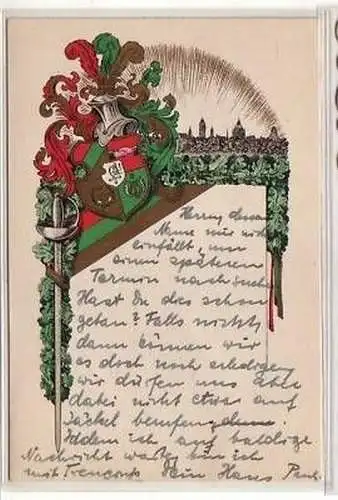 Herrn, dessen
Name mir nicht
einfällt, um
einen späteren
Termin nachsuchen
Hast Du das schon
getan? Falls nicht,
dann können wir
es doch noch erledigen
wir dürfen uns aber
dabei nicht etwa auf
Jäckel berufen,
Indem ich auf baldige
Nachricht warte, bin ich
mit Dein Hans Paul.